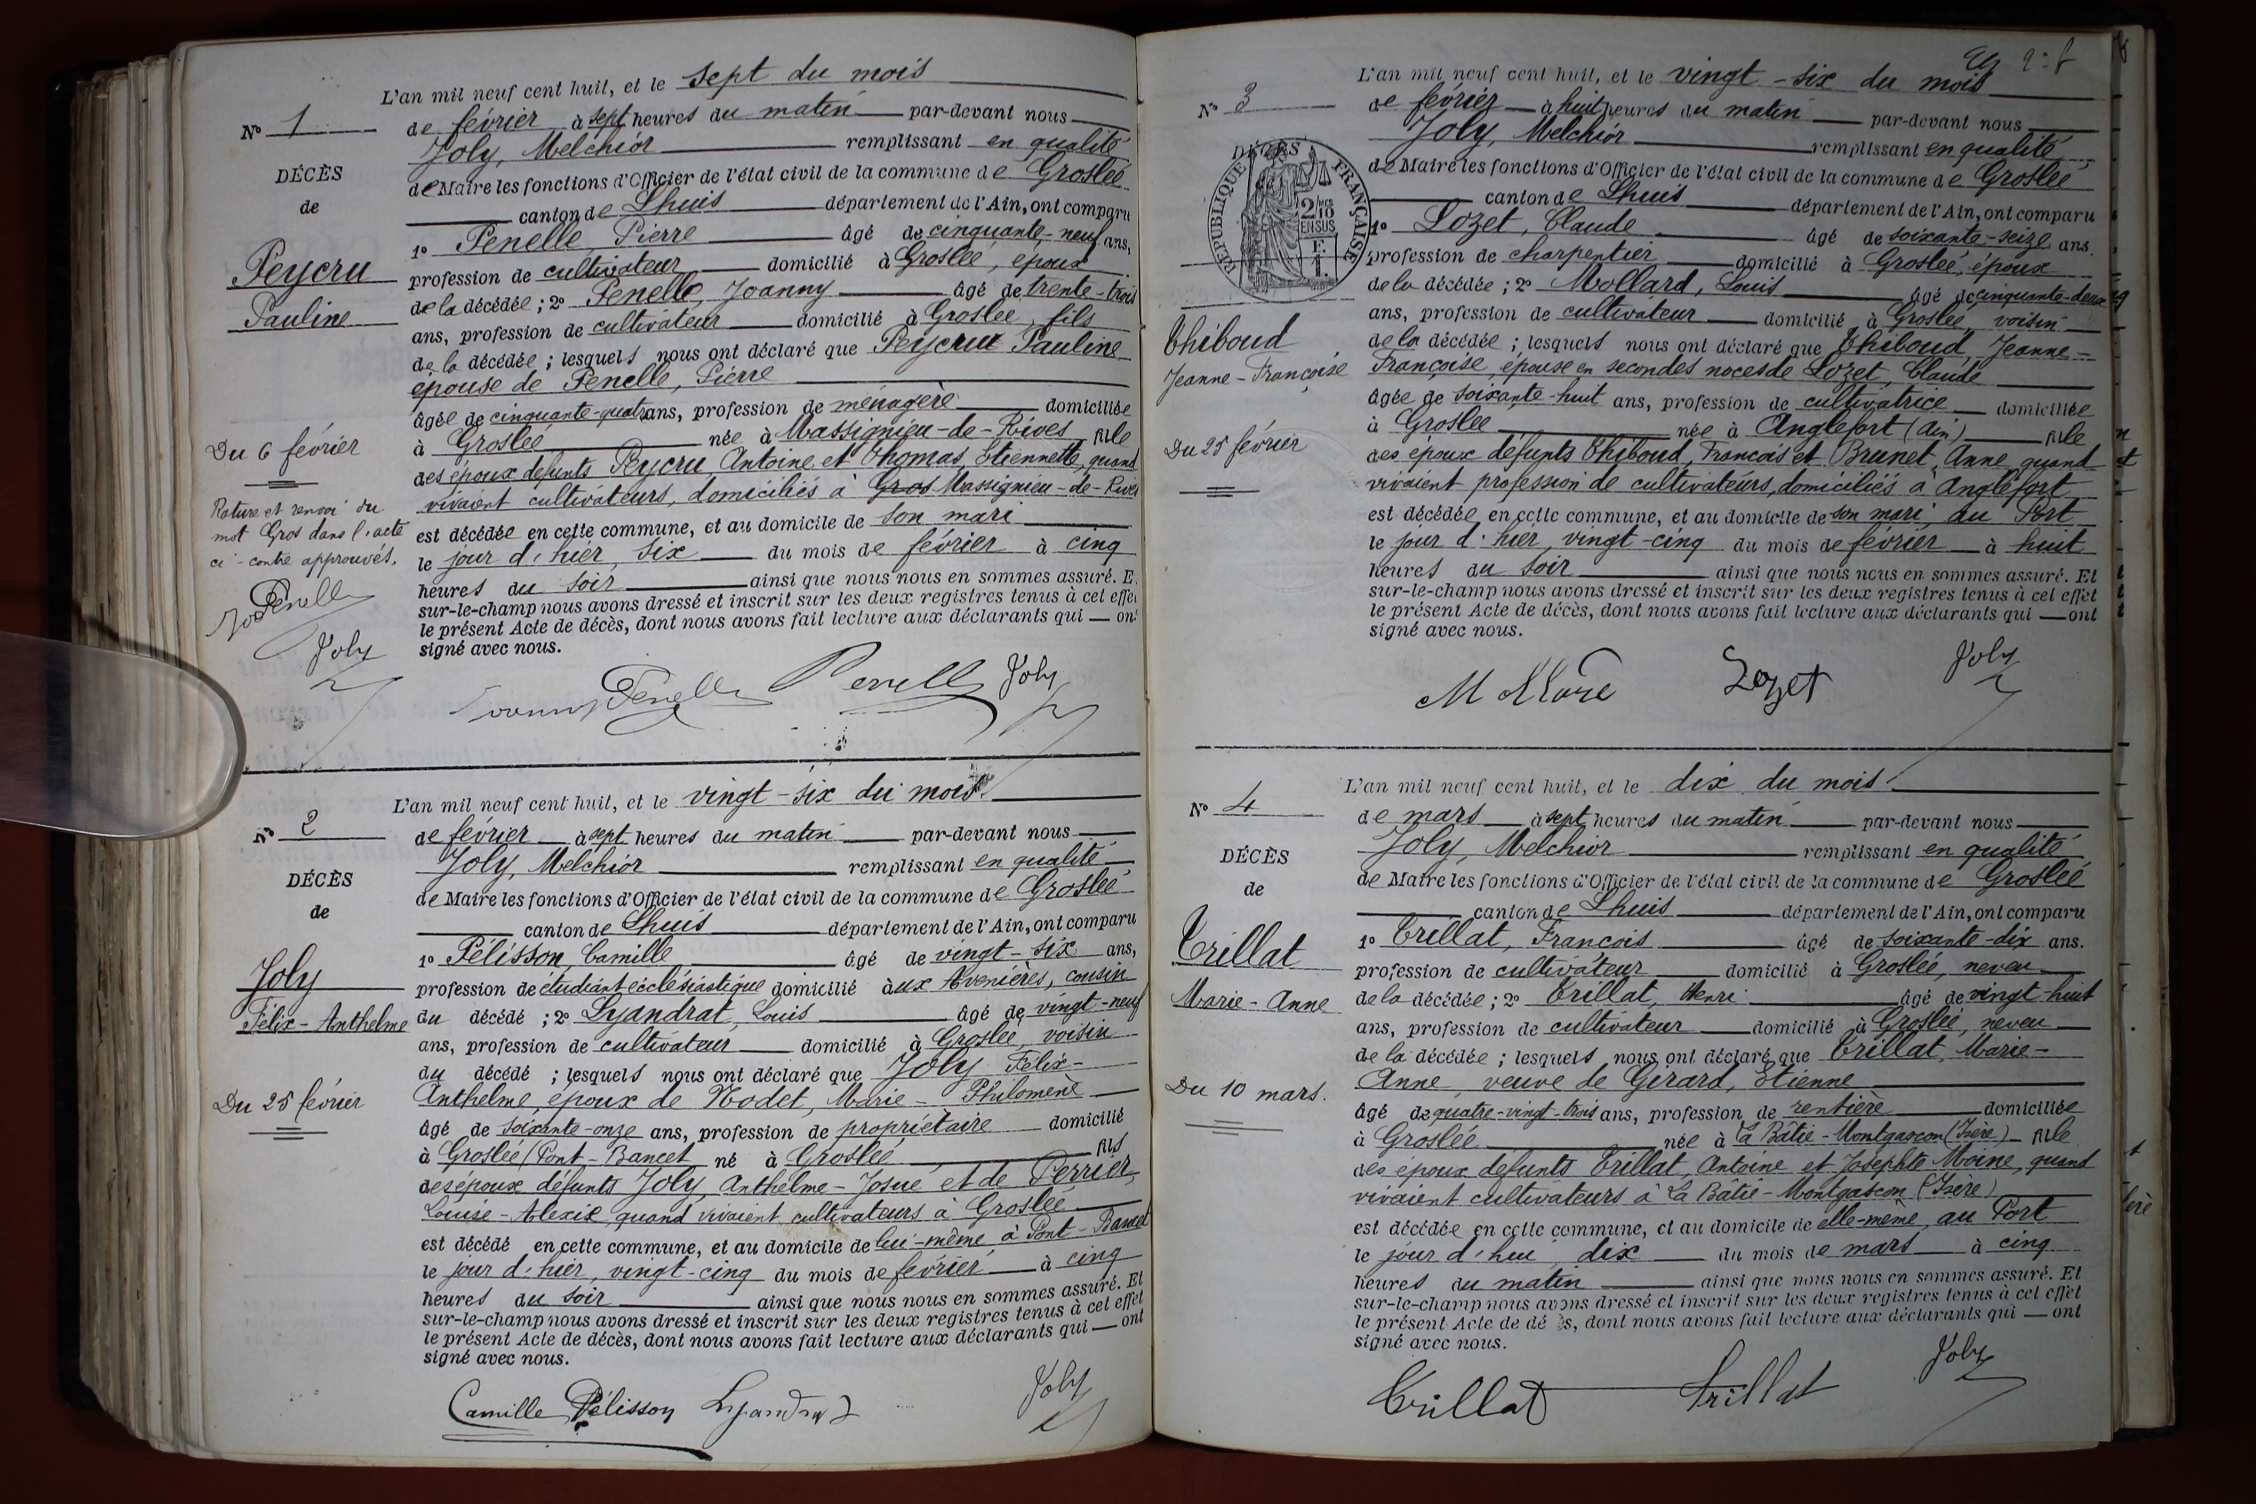 L'an mil neuf cent huit, et le sept du mois
N° 1
de février à sept heures du matin par-devant nous
Joly, Melchior remplissant en qualité
DÉCÈS
de Maire les fonctions d'Officier de l'état civil de la commune de Groslée
de
canton de Lhuis département de l'Ain, ont comparu
1° Penelle, Pierre âgé de cinquante-neuf ans,
Peycru
profession de cultivateur domicilié à Groslée, époux
Pauline
de la décédée ; 2° Penelle, Joanny âgé de trente-trois
ans, profession de cultivateur domicilié à Groslée, fils
de la décédée ; lesquels nous ont déclaré que Peycru Pauline
épouse de Penelle, Pierre
âgée de cinquante-quatre ans, profession de ménagère domiciliée
Du 6 février
à Groslée née à Massignieu-de-Rives fille
des époux défunts Peycru, Antoine et Thomas, Etiennette, quand
vivaient cultivateurs, domiciliés à Gros Massignieu-de-Rives
Rature et renvoi du
mot Gros dans l'acte
ci-contre approuvés.
est décédée en cette commune, et au domicile de son mari
le jour d'hier, six du mois de février à cinq
heures du soir ainsi que nous nous en sommes assuré. E
sur-le-champ nous avons dressé et inscrit sur les deux registres tenus à cet effet
le présent Acte de décès, dont nous avons fait lecture aux déclarants qui ont
signé avec nous.
Jo Penelle
Joly
Joanny Penelle Penelle Joly
L'an mil neuf cent huit, et le vingt-six du mois
N° 2
de février à sept heures du matin par-devant nous
Joly, Melchior remplissant en qualité
DÉCÈS
de Maire les fonctions d'Officier de l'état civil de la commune de Groslée
de
canton de Lhuis département de l'Ain, ont comparu
1° Pélisson Camille âgé de vingt-six ans,
Joly
profession de étudiant ecclésiastique domicilié aux Avenières, cousin
Félix-Anthelme
du décédé ; 2° Lyandrat, Louis âgé de vingt-neuf
ans, profession de cultivateur domicilié à Groslée, voisin
du décédé ; lesquels nous ont déclaré que Joly Félix-
Du 25 février
Anthelme, époux de Nodet, Marie-Philomène
âgé de soixante-onze ans, profession de propriétaire domicilié
à Groslée (Pont-Bancet né à Groslée fils
des époux défunts Joly, Anthelme-Josué et de Perrier,
Louise-Alexie, quand vivaient cultivateurs à Groslée
est décédé en cette commune, et au domicile de lui-même à Pont-Bancet
le jour d'hier, vingt-cinq du mois de février à cinq
heures du soir ainsi que nous nous en sommes assuré. Et
sur-le-champ nous avons dressé et inscrit sur les deux registres tenus à cet effet
le présent Acte de décès, dont nous avons fait lecture aux déclarants qui ont
signé avec nous.
Camille Pélisson Lyandrat Joly
L'an mil neuf cent huit, et le vingt-six du mois
N° 3
de février à huit heures du matin par-devant nous
Joly, Melchior remplissant en qualité
DÉCÈS
RÉPUBLIQUE FRANÇAISE
2/10 EN SUS
de Maire les fonctions d'Officier de l'état civil de la commune de Groslée
canton de Lhuis département de l'Ain, ont comparu
1° Lozet, Claude âgé de soixante-seize ans.
profession de charpentier domicilié à Groslée, époux
de la décédée ; 2° Mollard, Louis âgé de cinquante-deux
ans, profession de cultivateur domicilié à Groslée voisin
Thiboud
Jeanne-Françoise
de la décédée ; lesquels nous ont déclaré que Thiboud, Jeanne-
Françoise, épouse en secondes noces de Lozet, Claude
âgée de soixante-huit ans, profession de cultivatrice domiciliée
à Groslée née à Anglefort (Ain) fille
Du 25 février
des époux défunts Thiboud, François et Brunet, Anne, quand
vivaient profession de cultivateurs, domiciliés à Anglefort
est décédée en cette commune, et au domicile de son mari au Port
le jour d'hier, vingt-cinq du mois de février à huit
heures du soir ainsi que nous nous en sommes assuré. Et
sur-le-champ nous avons dressé et inscrit sur les deux registres tenus à cet effet
le présent Acte de décès, dont nous avons fait lecture aux déclarants qui ont
signé avec nous.
Lozet Joly
L'an mil neuf cent huit, et le dix du mois
N° 4
de mars à sept heures du matin par-devant nous
Joly, Melchior remplissant en qualité
DÉCÈS
de Maire les fonctions d'Officier de l'état civil de la commune de Groslée
de
canton de Lhuis département de l'Ain, ont comparu
1° Trillat, François âgé de soixante-dix ans.
Trillat
profession de cultivateur domicilié à Groslée, neveu
Marie-Anne
de la décédée ; 2° Trillat, Henri âgé de vingt-huit
ans, profession de cultivateur domicilié à Groslée, neveu
de la décédée ; lesquels nous ont déclaré que Trillat, Marie-
Du 10 mars.
Anne veuve de Girard, Etienne
âgé de quatre-vingt-trois ans, profession de rentière domiciliée
à Groslée née à La Bâtie-Montgascon (Isère) fille
des époux défunts Trillat, Antoine et Josephte Moine, quand
vivaient cultivateurs à La Bâtie-Montgascon (Isère)
est décédée en cette commune, et au domicile de elle-même, au Port
le jour d'hui dix du mois de mars à cinq
heures du matin ainsi que nous nous en sommes assuré. Et
sur-le-champ nous avons dressé et inscrit sur les deux registres tenus à cet effet
le présent Acte de dé s, dont nous avons fait lecture aux déclarants qui ont
signé avec nous.
Trillat Trillat Joly